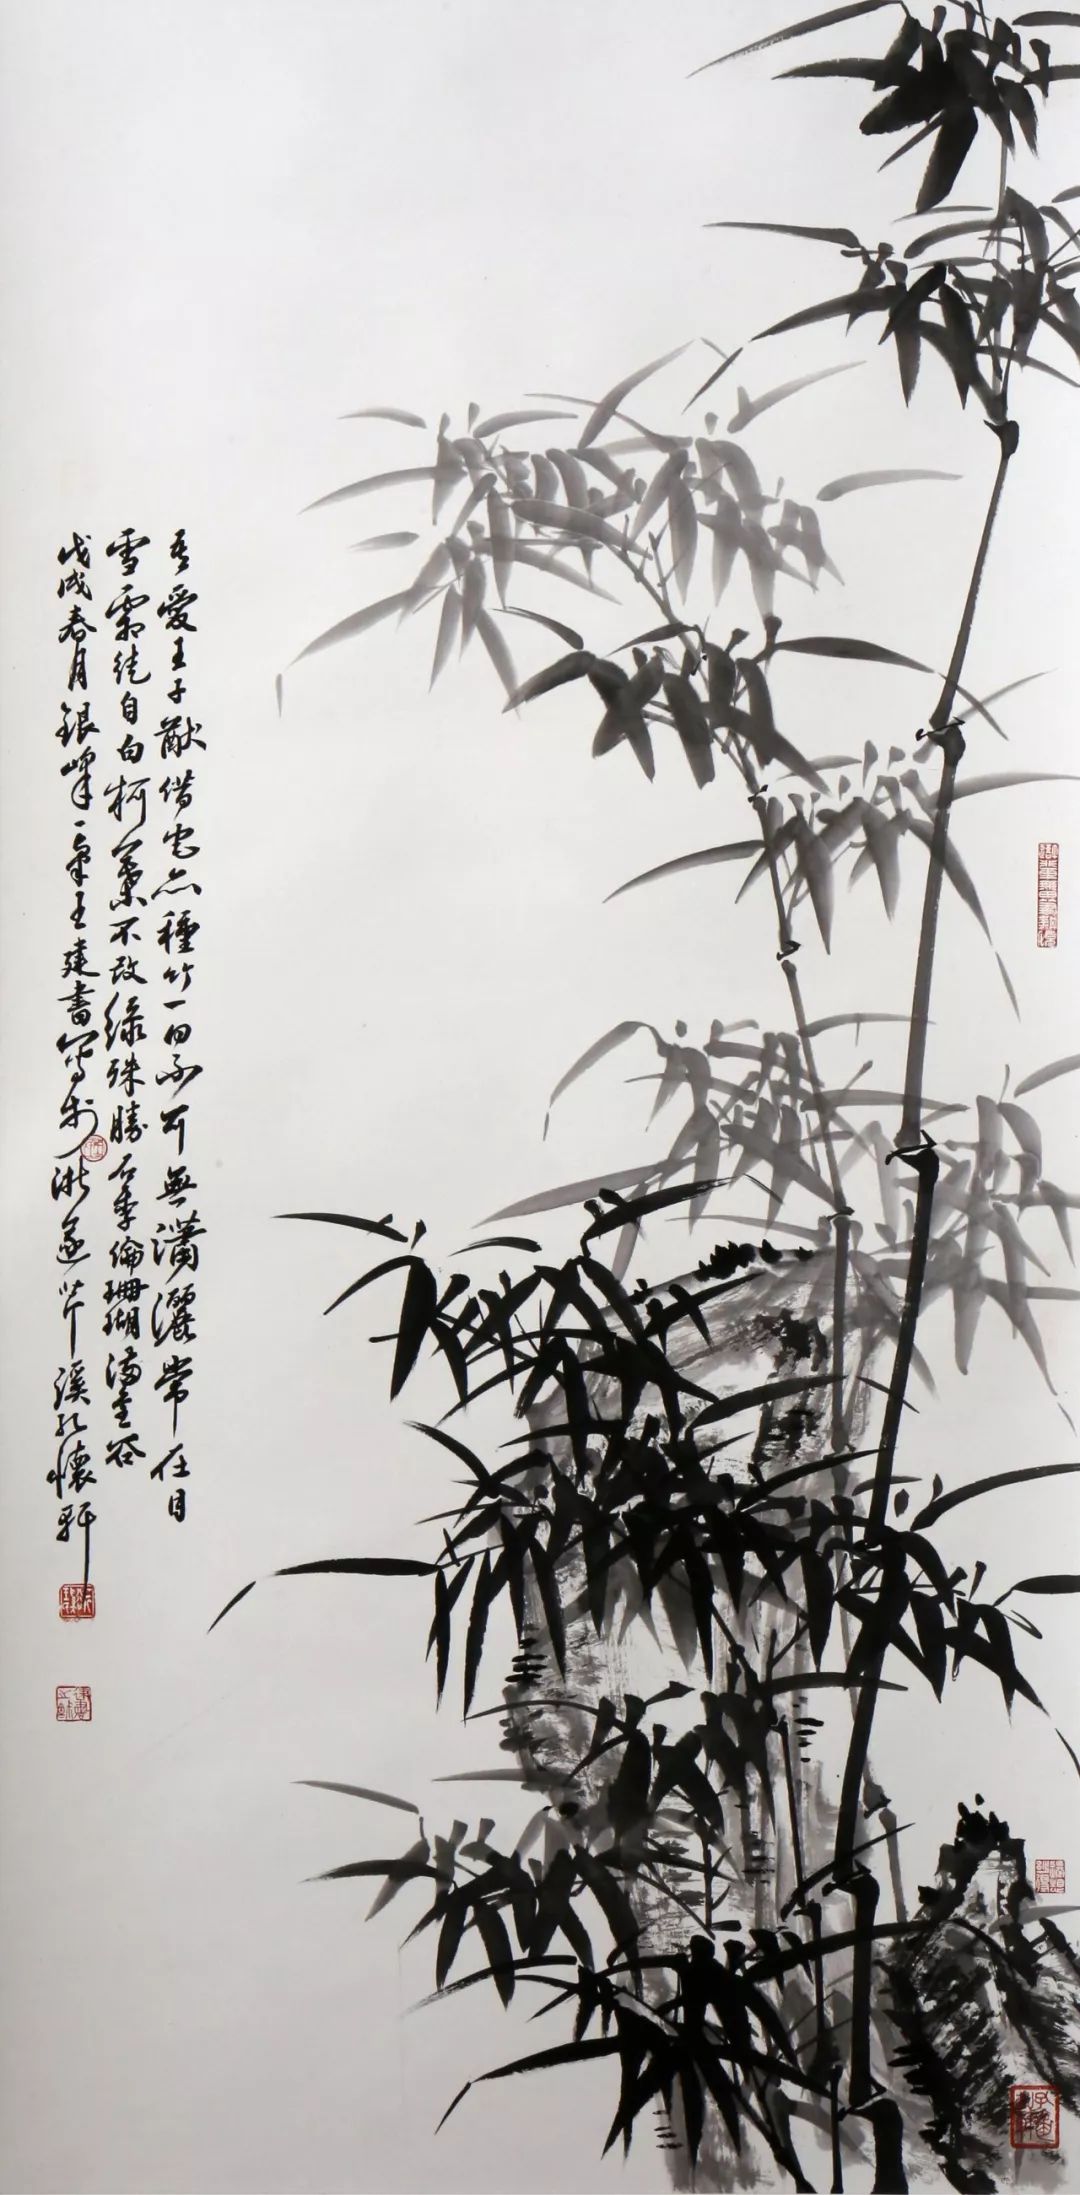 吾愛王子猷借宅亦種竹一日不可無瀟灑常在目
雪霜徒自白柯葉不改綠殊勝石季倫珊瑚滿金谷
戊戌春月銀峰王建書寫於浙遂芹溪孔懷軒